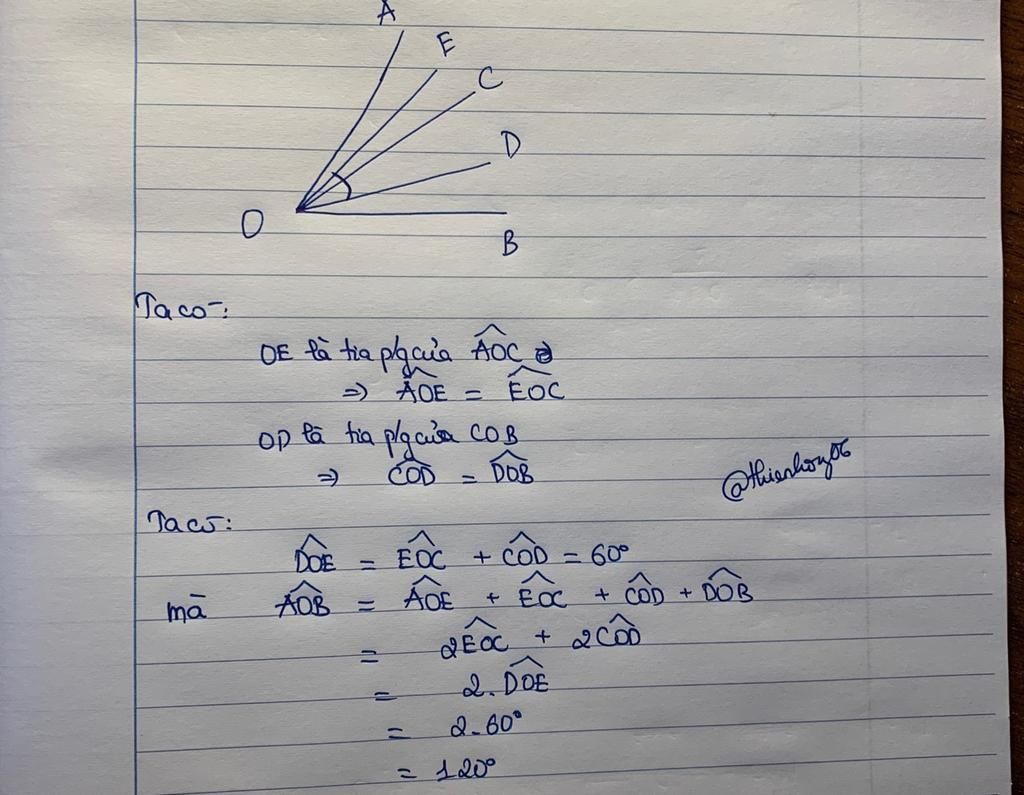 A
E
C
D
O
B
Ta có:
OE là tia p/g của ÂOC
=> AÔE = EÔC
OD là tia p/g của COB
=> CÔD = DÔB
@thienhoy06
Ta có:
DÔE = EÔC + CÔD = 60°
mà AÔB = AÔE + EÔC + CÔD + DÔB
= 2EÔC + 2CÔD
= 2. DÔE
= 2.60°
= 120°